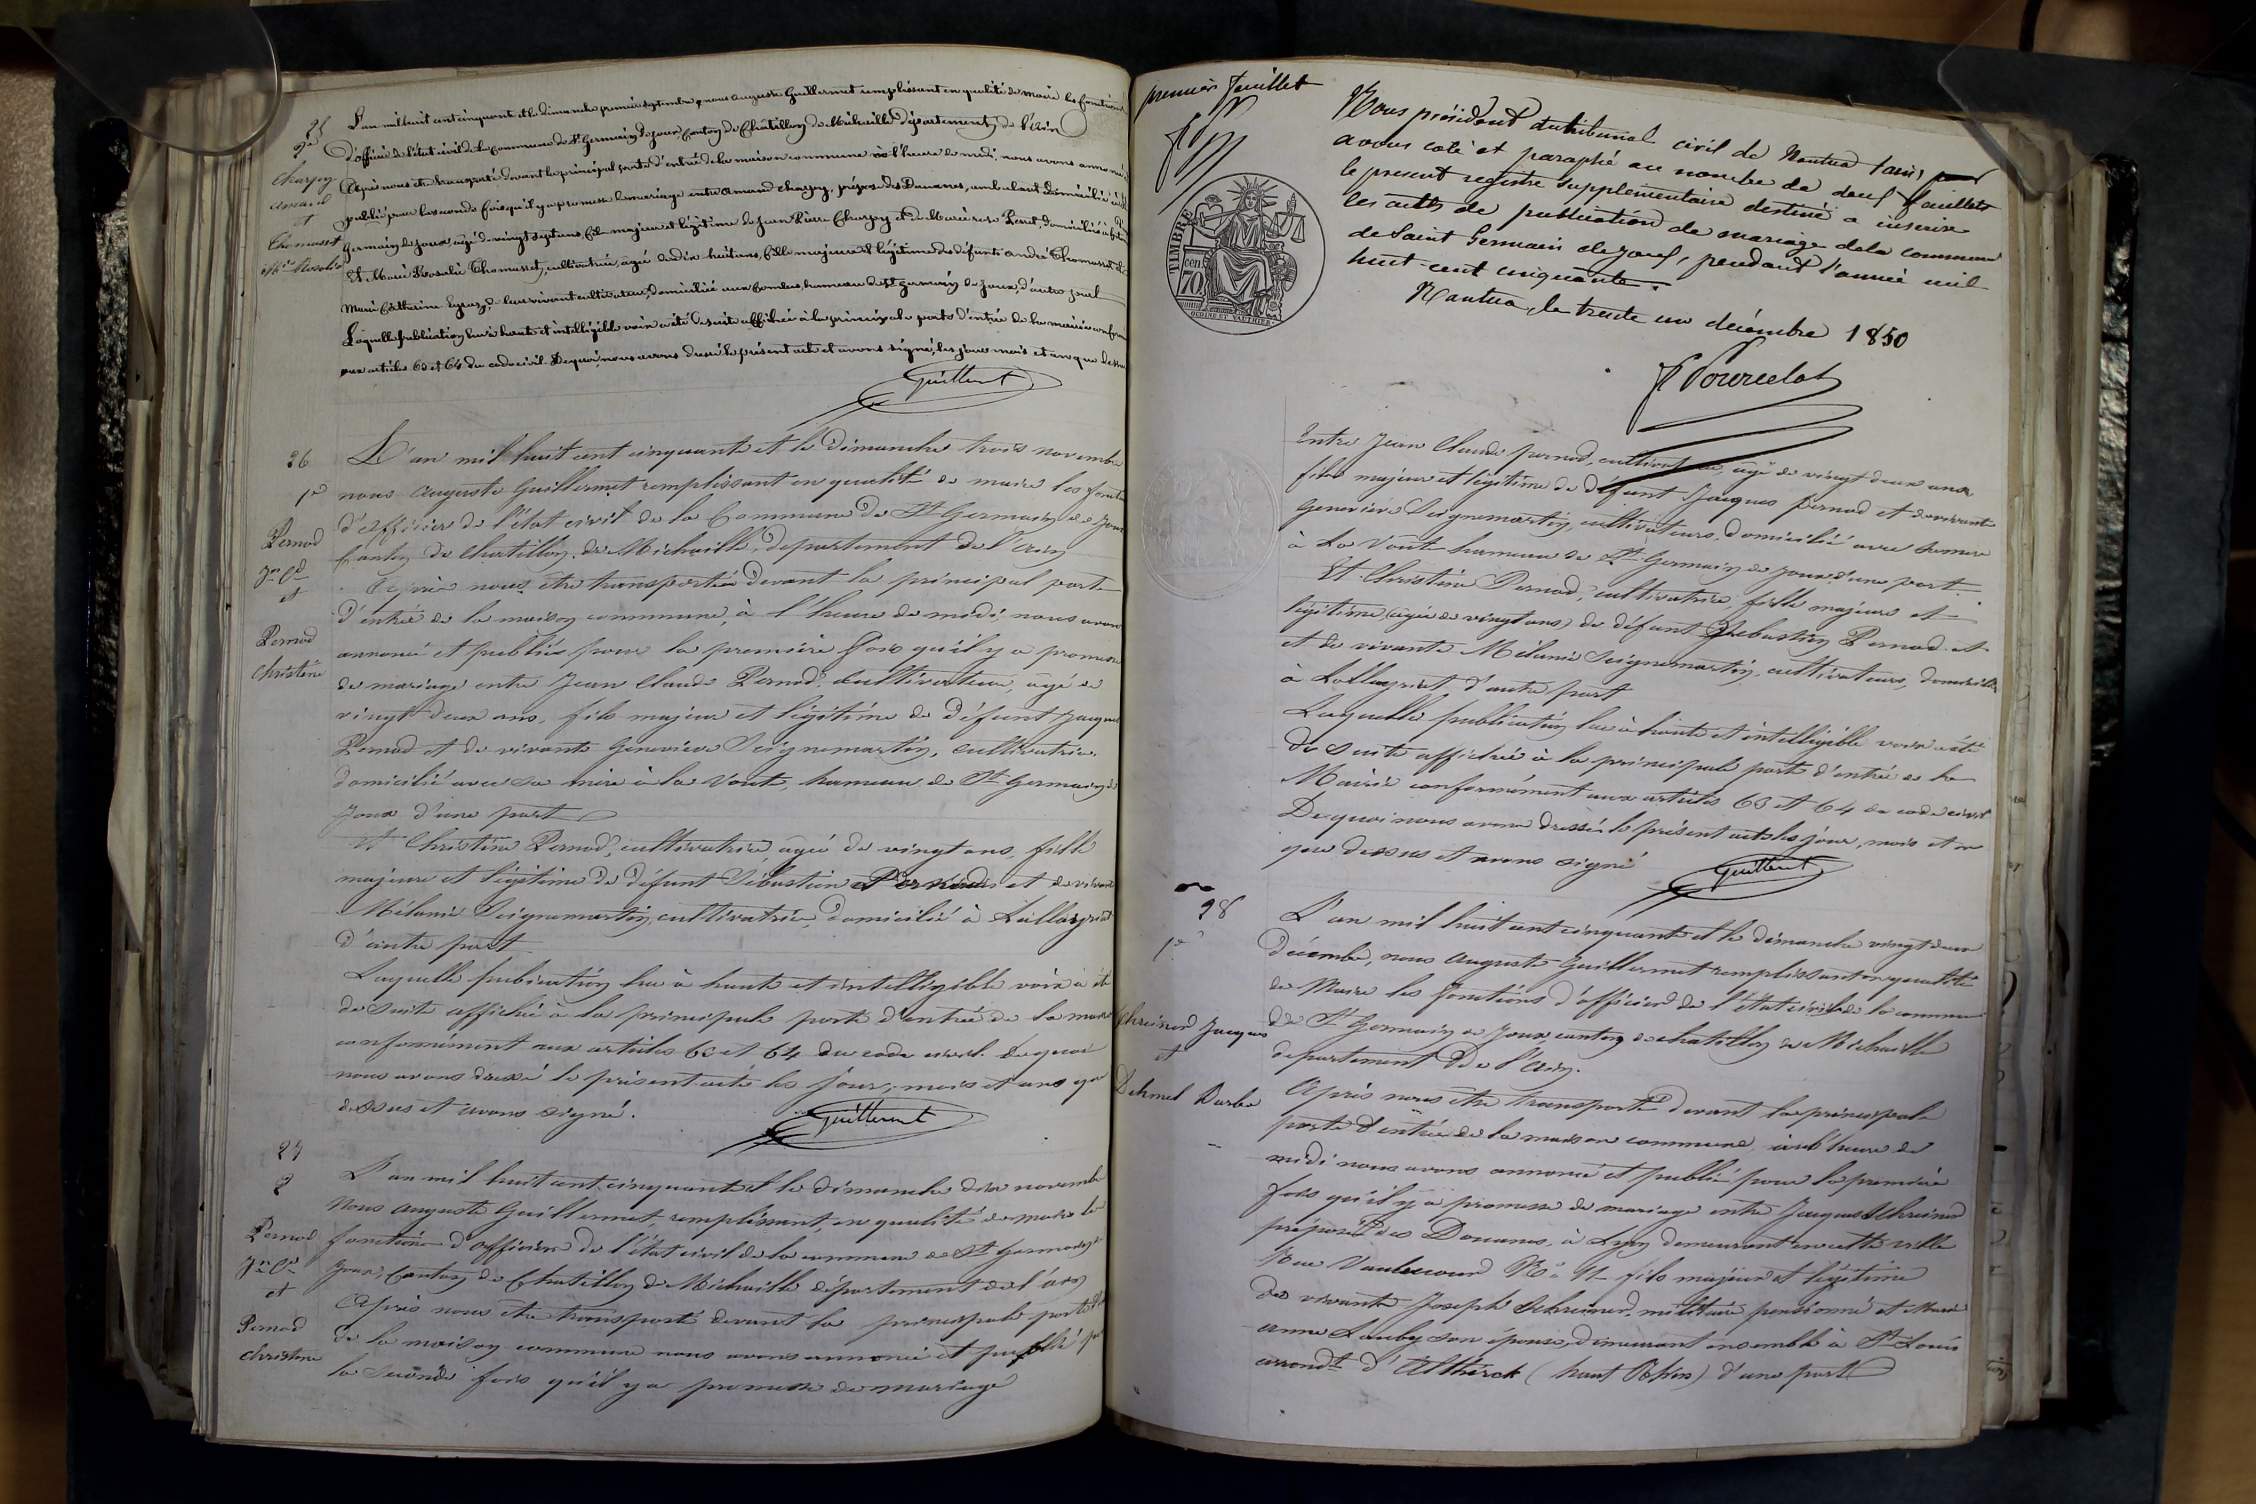 25
2e
Charpy
Amand
et
Chomasset
Mie Rosalie
L'an mil huit cent cinquante et le dimanche premier septembre nous Auguste Guillermet remplissant en qualité de maire les fonctions
d'officier de l'état civil de la commune de St Germain de Joux canton de Châtillon de Michaille département de l'Ain
Après nous être transporté devant la principal porte d'entrée de la maison commune à l'heure de midi, nous avons annoncé
publié pour la seconde fois qu'il y a promesse de mariage entre Amand Charpy, préposé des Douanes, ambulant domicilié à St
Germain de Joux, âgé de vingt sept ans, fils majeur et légitime de Jean Pierre Charpy et de Marie rose Perret, domiciliés à
Et Marie Rosalie Chomasset, cultivatrice, agée de dix huit ans, fille majeure et légitime de défunts André Chomasset et de
Marie Catherine leur vivant cultivateurs, domiciliée aux hameau de St Germain de Joux, d'autre part
Laquelle publication lue à haute et intelligible voix a été de suite affichée à la principale porte d'entrée de la mairie conformément
aux articles 63 et 64 du code civil. De quoi, nous avons dressé le présent acte et avons signé, les jour mois et an que dessus
Guillermet
26
1e
Pernod
Jn Cde
et
Pernod
Christine
L'an mil huit cent cinquante et le dimanche trois novembre
nous Auguste Guillermet remplissant en qualité de maire les fonctions
d'officier de l'état civil de la Commune de St Germain de Joux
Canton de Chatillon de Michaille, département de l'Ain
Après nous être transportée devant la principal porte
d'entrée de la maison commune, à l'heure de midi, nous avons
annoncé et publié pour la première fois qu'il y a promesse
de mariage entre Jean Claude Pernod, Cultivateur, âgé de
vingt deux ans, fils majeur et légitime de défunt Jacques
Pernod et de vivante Geneviève Seignemartin, cultivatrice,
domicilié avec sa mère à la Voute, hameau de St Germain de
Joux d'une part
Et Christine Pernod, cultivatrice, agée de vingt ans, fille
majeure et légitime de défunt Sébastien Pernod et de vivante
Mélanie Seignemartin, cultivatrice, domicilié à Lalleyriat
d'autre part
Laquelle publication lue à haute et intelligible voix a été
de suite affichée à la principale porte d'entrée de la mairie
conformément aux articles 63 et 64 du code civil. De quoi
nous avons dressé le présent acte les jour, mois et ans que
dessus et avons signé.
Guillermet
27
2
Pernod
Jn Cde
et
Pernod
Christine
L'an mil huit cent cinquante et le dimanche dix novembre
Nous Auguste Guillermet, remplissant en qualité de maire les
fonctions d'officier de l'état civil de la commune de St Germain de
Joux, Canton de Chatillon de Michaille département de l'Ain
Après nous être transporté devant la principale porte
de la maison commune nous avons annoncé et publié pour
la seconde fois qu'il y a promesse de mariage
premier feuillet
Nous président du tribunal civil de Nantua (ain)
avons coté et paraphé au nombre de deux feuillets
le présent registre supplémentaire destiné a inscrire
les actes de publication de mariage de la commune
de Saint Germain de Joux, pendant l'année mil
huit cent cinquante.
Nantua, le trente un décembre 1850
TIMBRE
70 cen.
Entre Jean Claude pernod, cultivateur, agé de vingt deux ans
fils majeur et légitime de défunt Jacques Pernod et de vivante
Geneviève Seignemartin, cultivateurs, domicilié avec sa mère
à La Voute hameau de St Germain de Joux d'une part.
Et Christine Pernod, cultivatrice, fille majeure et
légitime (agée de vingt ans) de défunt Sebastien Pernod et
et de vivante Mélanie Seignemartin, cultivateurs, domiciliée
à Lalleyriat d'autre part
Laquelle publication lue à haute et intelligible voix a été
de suite affichée à la principale porte d'entrée de la
Mairie conformément aux articles 63 et 64 du code civil
De quoi nous avons dressé le présent acte les jour, mois et an
que dessus et avons signé
Guillermet
28
1e
Schreiner Jacques
et
L'an mil huit cent cinquante et le dimanche vingt deux
décembre, nous Auguste Guillermet remplissant en qualité
de Maire les fonctions d'officier de l'état civil de la commune
de St Germain de Joux, canton de Chatillon de Michaille
departement de l'Ain.
Après nous être transporté devant la principale
porte d'entrée de la maison commune, à l'heure de
midi nous avons annoncé et publié pour la première
fois qu'il y a promesse de mariage entre Jacques Schreiner
préposé des Douanes, à Lyon demeurant en cette ville
Rue Vaubecour No 11 fils majeur et légitime
de vivants Joseph Schreiner, militaire pensionné et Marie
anne son épouse, demeurant ensemble à St Louis
arrondt d'Altkirch (haut Rhin) d'une part